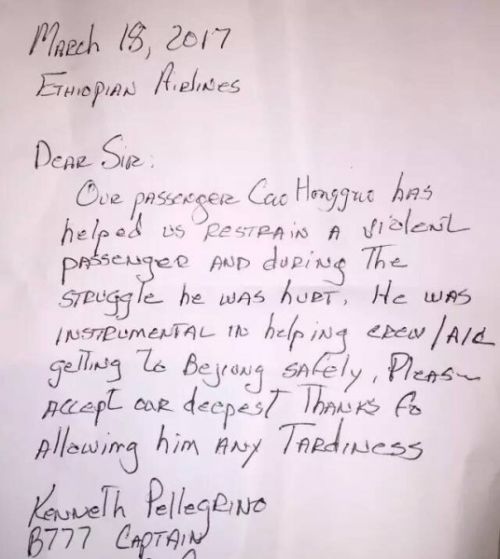 March 18, 2017
Ethiopian Airlines
Dear Sir:
Our passenger Cao Hongguo has
helped us restrain a violent
passenger and during the
struggle he was hurt. He was
instrumental in helping crew/A/C
getting to Bejiong safely, Please
accept our deepest thanks fo
Allowing him any Tardiness
Kenneth Pellegrino
B777 Captain